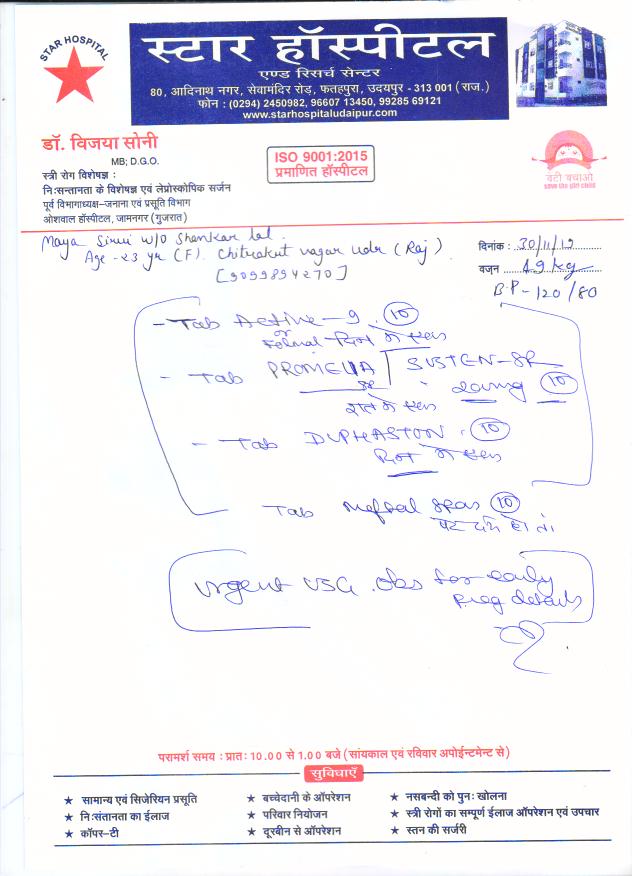 STAR HOSPITAL
स्टार हॉस्पीटल
एण्ड रिसर्च सेन्टर
80, आदिनाथ नगर, सेवामंदिर रोड़, फतहपुरा, उदयपुर - 313 001 (राज.)
फोन : (0294) 2450982, 96607 13450, 99285 69121
www.starhospitaludaipur.com
डॉ. विजया सोनी
MB; D.G.O.
स्त्री रोग विशेषज्ञ :
नि:सन्तानता के विशेषज्ञ एवं लेप्रोस्कोपिक सर्जन
पूर्व विभागाध्यक्ष-जनाना एवं प्रसूति विभाग
ओशवाल हॉस्पीटल, जामनगर (गुजरात)
ISO 9001:2015
प्रमाणित हॉस्पीटल
बेटी बचाओ
save the girl child
Maya W/O Shankar lal.
Age - 23 yr (F). Chitrakut nagar udr (Raj)
दिनांक : 30/11/19
वजन 49 kg
B.P - 120/80
- Tab Active-9. 10
दिन में एक
- Tab SUSTEN-SR
10
रात में एक
- Tab DUPHASTON. 10
दिन में एक
Tab Meftal spas 10
पेट दर्द हो तो
Urgent USG. Obs for early
Preg details
परामर्श समय : प्रात: 10.00 से 1.00 बजे (सांयकाल एवं रविवार अपोईन्टमेन्ट से)
सुविधाएँ
★ सामान्य एवं सिजेरियन प्रसूति ★ बच्चेदानी के ऑपरेशन ★ नसबन्दी को पुन: खोलना
★ नि:संतानता का ईलाज ★ परिवार नियोजन ★ स्त्री रोगों का सम्पूर्ण ईलाज ऑपरेशन एवं उपचार
★ कॉपर-टी ★ दूरबीन से ऑपरेशन ★ स्तन की सर्जरी